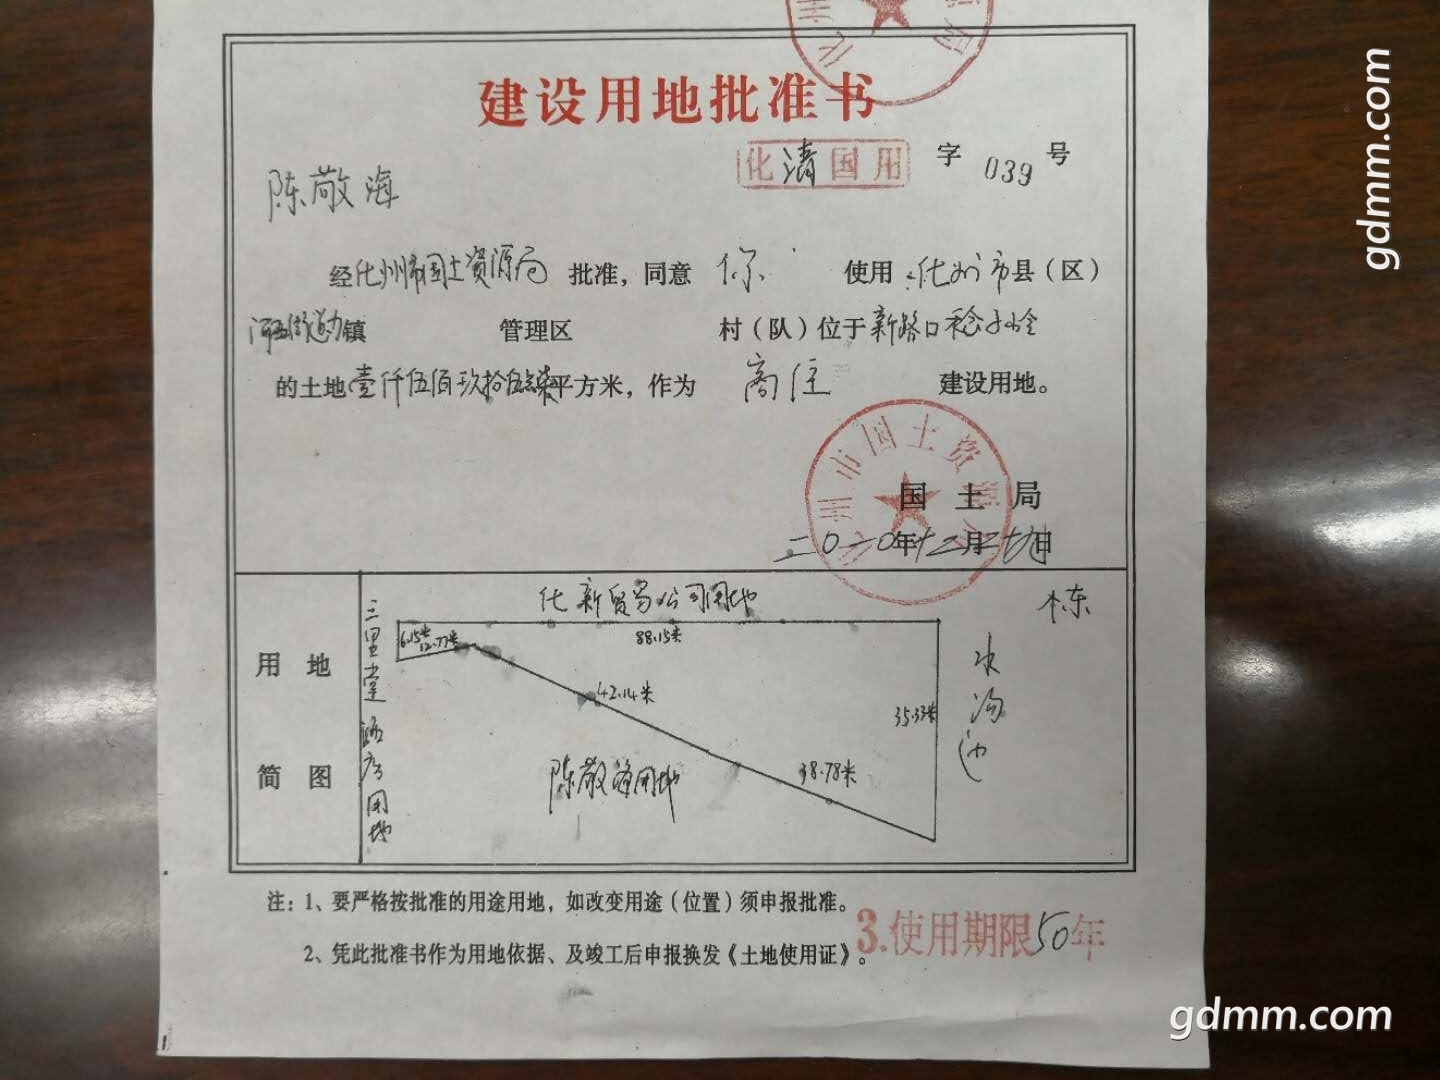 建设用地批准书
化清国用 字 039 号
陈敬海
经化州市国土资源局 批准，同意 你 使用 化州市县（区）
河西街道办镇 管理区 村（队）位于新路口稔子岭
的土地壹仟伍佰玖拾伍 平方米，作为 商住 建设用地。
化州市国土资源局
国土局
二〇一〇年十二月 日
化新贸易公司用地
栋
三里堂 用地
6.15米
12.77米
88.15米
42.14米
38.78米
35.33米
陈敬海用地
水沟边
用地
简图
注：1、要严格按批准的用途用地，如改变用途（位置）须申报批准。
2、凭此批准书作为用地依据、及竣工后申报换发《土地使用证》。
3.使用期限50年
gdmm.com
gdmm.com